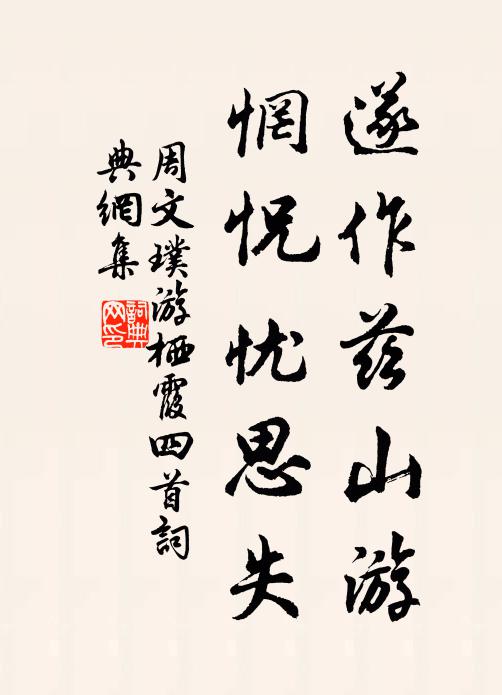 遂作兹山游
惘怳忧思失
周文璞游栖霞四首詞
典網集
詞典网印